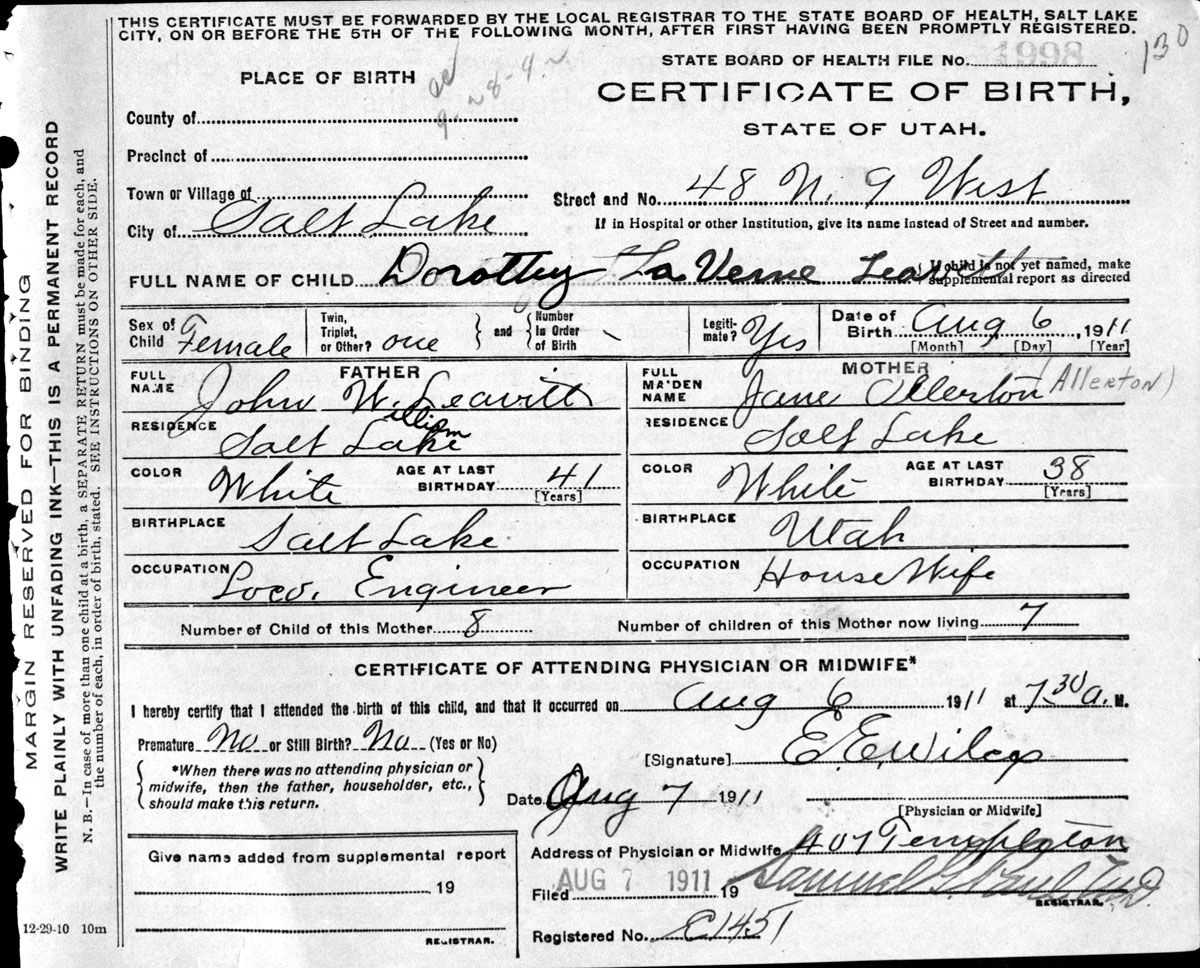 THIS CERTIFICATE MUST BE FORWARDED BY THE LOCAL REGISTRAR TO THE STATE BOARD OF HEALTH, SALT LAKE
CITY, ON OR BEFORE THE 5TH OF THE FOLLOWING MONTH, AFTER FIRST HAVING BEEN PROMPTLY REGISTERED.
130
PLACE OF BIRTH
STATE BOARD OF HEALTH FILE No.
CERTIFICATE OF BIRTH,
STATE OF UTAH.
County of
Precinct of
Town or Village of
City of Salt Lake
Street and No. 48 N. 9 West
If in Hospital or other Institution, give its name instead of Street and number.
FULL NAME OF CHILD Dorothy La Verne Leavitt
If child is not yet named, make
supplemental report as directed
Sex of Child Female
Twin, Triplet, or Other? one
and
Number In Order of Birth
Legitimate? Yes
Date of Birth Aug 6, 1911
[Month] [Day] [Year]
FATHER
FULL NAME John W. Leavitt
William
RESIDENCE Salt Lake
COLOR White
AGE AT LAST BIRTHDAY 41
[Years]
BIRTHPLACE Salt Lake
OCCUPATION Loco. Engineer
MOTHER
FULL MAIDEN NAME Jane Ollerton (Allerton)
RESIDENCE Salt Lake
COLOR White
AGE AT LAST BIRTHDAY 38
[Years]
BIRTHPLACE Utah
OCCUPATION House Wife
Number of Child of this Mother 8
Number of children of this Mother now living 7
CERTIFICATE OF ATTENDING PHYSICIAN OR MIDWIFE*
I hereby certify that I attended the birth of this child, and that it occurred on Aug 6 1911 at 7 30 a. M.
Premature No or Still Birth? No (Yes or No)
*When there was no attending physician or
midwife, then the father, householder, etc.,
should make this return.
[Signature] E. E. Wilcox
Date Aug 7 1911
[Physician or Midwife]
Give name added from supplemental report
19
REGISTRAR.
Address of Physician or Midwife 407 Templeton
Filed AUG 7 1911 19
Samuel G. Paul M.D.
REGISTRAR.
Registered No. E1451
12-29-10 10m
MARGIN RESERVED FOR BINDING
WRITE PLAINLY WITH UNFADING INK—THIS IS A PERMANENT RECORD
N. B.—In case of more than one child at a birth, a SEPARATE RETURN must be made for each, and
the number of each, in order of birth, stated. SEE INSTRUCTIONS ON OTHER SIDE.